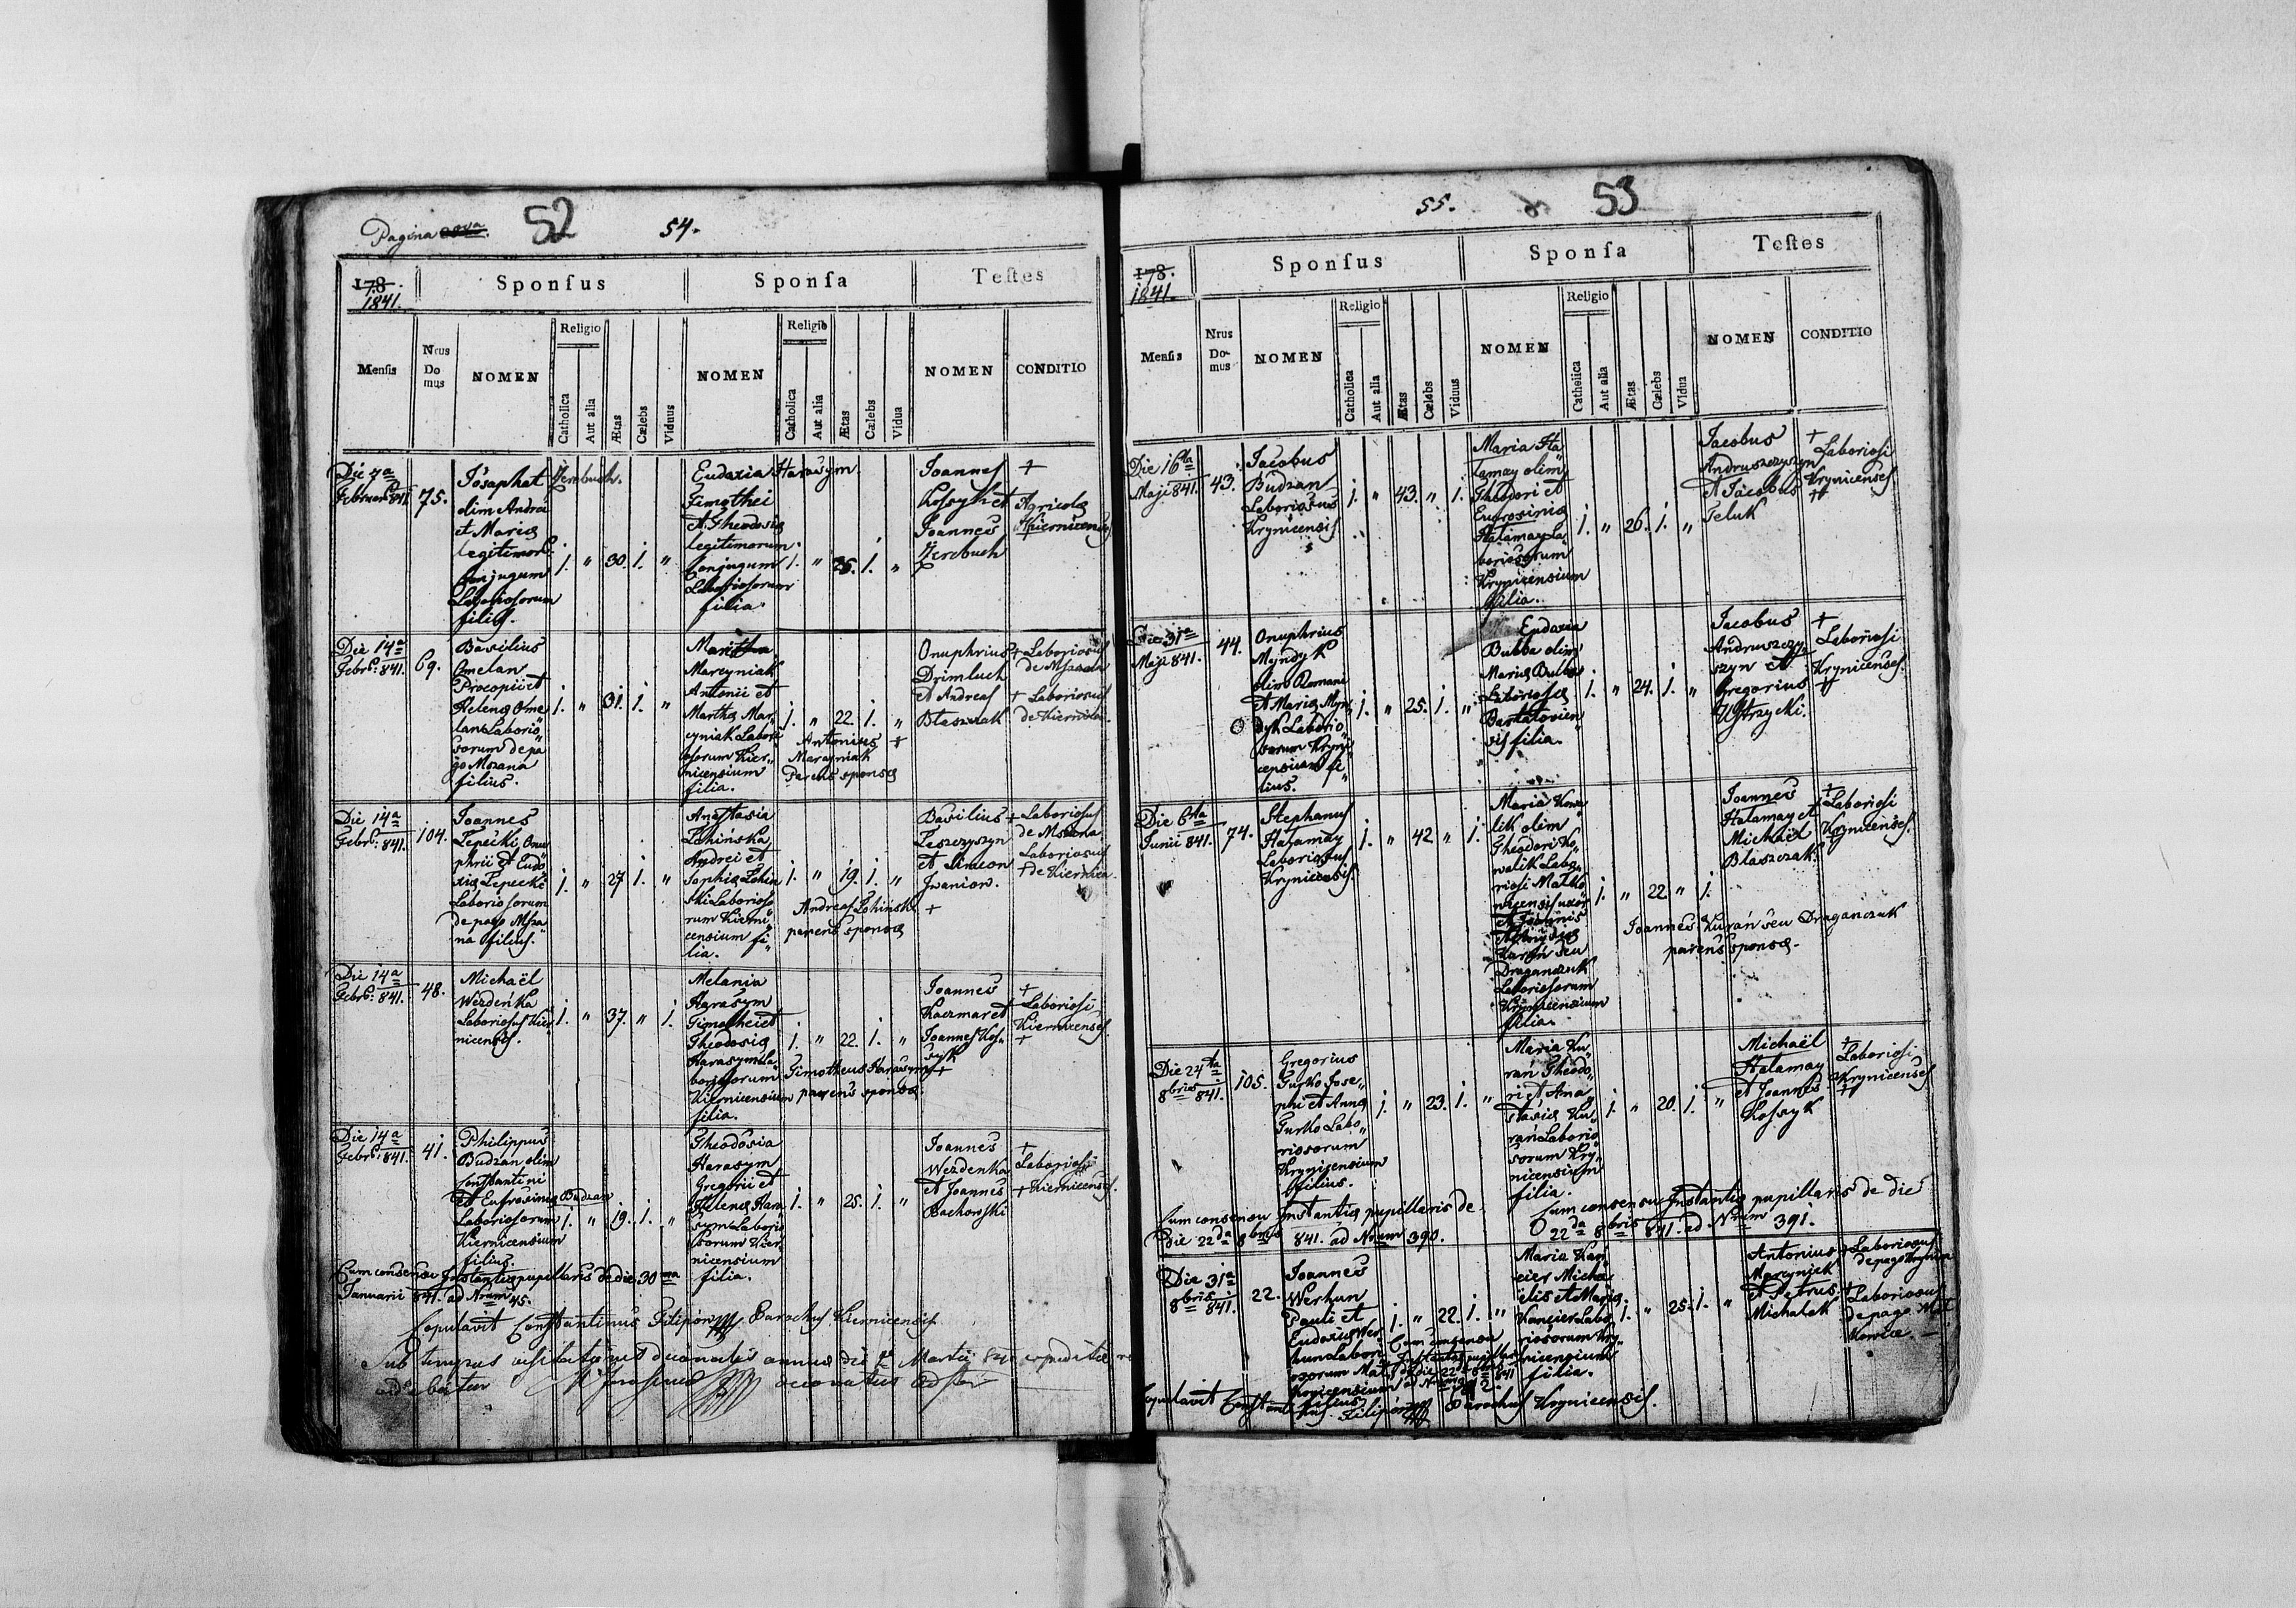 Pagina
52
54.
178
1841.
Sponsus
Sponsa
Testes
Mensis
Nrus Do mus
NOMEN
Religio
Catholica
Aut alia
Ætas
Cælebs
Viduus
NOMEN
Religio
Catholica
Aut alia
Ætas
Cælebs
Vidua
NOMEN
CONDITIO
Die 7a
Februarii 841.
75.
Josaphat
olim Andrei
et Maria
legitimor.
conjugum
Laboriosorum
filius.
1. " 30. 1. "
Eudoxia Harasym
Timothei
et Theodosia
legitimorum
conjugum
Laboriosorum
filia.
1. " 1. "
Joannes
Kossyk et
Joannes
+
Agricola
Kiernicensis
Die 14a
Febr. 841.
69.
Basilius
Omelan
Procopii et
Helena Ome
lan Laborio"
sorum de pa
go Mszana
filius.
1. " 31. 1. "
Martha
Marcyniak
Antonii et
Martha Mar"
cyniak Labori
osorum Kier"
nicensium
filia.
1. " 22. 1. "
Antonius +
Marcyniak
Parens sponsa
Onuphrius
Drimluch
et Andreas
Błaszczak
+ Laboriosus
de Mszana
+ Laboriosus
de Kiernica
Die 14a
Febr. 841.
104.
Joannes
Lepecki Onu
phrii et Eudo
xia Lepecki
Laboriosorum
de pago Msza
na filius.
1. " 27 1. "
Anastasia
Łohinska
Andrei et
Sophia Łohin
ski Laborioso
rum Kierni"
censium fi"
lia.
1. " 19. 1. "
Andreas Łohinski +
parens sponsa
Basilius
Leszczyszyn
et Simeon
Iwaniow.
+ Laboriosus
de Mszana
Laboriosus
+ de Kiernica
Die 14a
Febr. 841.
48.
Michaël
Wezdenka
Laboriosus Kier
nicensis.
1. " 37. " 1.
Melania
Harasym
Timothei et
Theodosia
Harasym La"
boriosorum
Kiernicensium
filia.
1. " 22. 1. "
Timotheus Harasym +
parens sponsa.
Joannes
Kaczmar et
Joannes Kos"
syk
+
Laboriosi
Kiernicenses
+
Die 14a
Febr. 841.
41.
Philippus
Budzan olim
Constantini
et Eufrosina Budzan
Laboriosorum
Kiernicensium
filius.
1. " 19. 1. "
Theodosia
Harasym
Gregorii et
Helena Hara
sym Laborio
sorum Kier"
nicensium
filia.
1. " 25. 1. "
Joannes
Wezdenka
et Joannes
Bachowski
+
Laboriosi
+ Kiernicenses.
Cum consensu Instantia pupillaris de die 30ma
Januarii 841. ad Nrum 45.
Copulavit Constantinus Filipow Parochus Kiernicensis
Sub tempus visitationis decanalis
55.
53
178.
1841.
Sponsus
Sponsa
Testes
Mensis
Nrus Do- mus
NOMEN
Religio
Catholica
Aut alia
Ætas
Cælebs
Viduus
NOMEN
Religio
Catholica
Aut alia
Ætas
Cælebs
Vidua
NOMEN
CONDITIO
Die 16ta
Maji 841.
43.
Jacobus
Budzan
Laboriosus
Krynicensis
1. " 43. " 1.
Maria Ha
łamay olim
Theodori et
Eufrosinia
Hałamay La
boriosorum
Krynicensium
filia.
1. " 26. 1. "
Jacobus
Andruszczyszyn
et Jacobus
Peluk
+
Laboriosi
Krynicenses
+
Die 31a
Maji 841.
44.
Onuphrius
Myndyk
olim Romani
et Maria Myn"
dyk Laborio"
sorum Kryni"
censium fi"
lius.
1. " 25. 1. "
Eudoxia
Bubba olim
Maria Bubba
Laboriosa
Bartatovien"
sis filia.
1. " 24. 1. "
Jacobus
Andruszczy"
szyn et
Gregorius
Ustrzycki.
+
Laboriosi
Krynicenses.
+
Die 6ta
Junii 841.
74.
Stephanus
Hałamay
Laboriosus
Krynicensis
1. " 42 " 1.
Maria Kowa
lik olim
Theodori Ko"
walik Labo"
riosi
uxor
et Joannis
Kuran seu
Draganczuk
Laboriosorum
Krynicensium
filia.
1. " 22 " 1.
Joannes Kuran seu Draganczuk
parens sponsa.
Joannes
Hałamay et
Michaël
Błaszczak.
+
Laboriosi
Krynicenses.
+
Die 24ta
8bris 841.
105.
Gregorius
Gurko Jose"
phi et Anna
Gurko Labo"
riosorum
Krynicensium
filius.
1. " 23. 1. "
Maria Ku"
ran Theodo"
ri et Ana"
stasia Ku"
ran Laborio
sorum Kry"
nicensium
filia.
1. " 20. 1. "
Michaël
Hałamay
et Joannes
Kossyk
+
Laboriosi
Krynicenses
+
Cum consensu Instantia pupillaris de
die 22da 8bris 841. ad Nrum 390.
Cum consensu Instantia pupillaris de die
22da 8bris 841. ad Nrum 391.
Die 31a
8bris 841.
22.
Joannes
Werhun
Pauli et
Eudoxia Wer"
hun Labori
osorum
filius
1. " 22. 1. "
Cum consensu
Instantia pupillaris
de die 22da 8bris 841
Maria Kan
cier Micha
elis et Maria
Kancier Labo
riosorum Kry"
nicensium
filia.
1. " 25. 1. "
Antonius
Marcyniek
et Petrus
Michalek
+ Laboriosus
de pago Krynica
+ Laboriosus
de pago
Copulavit Constantinus Filipow Parochus Krynicensis.